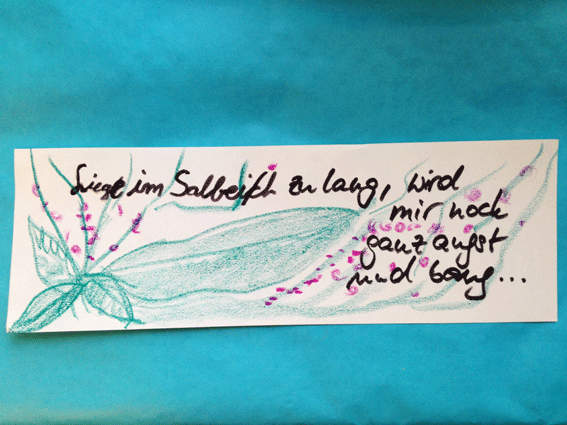 Liege im Salbei ich zu lang, wird
mir noch
ganz angst
und bang...